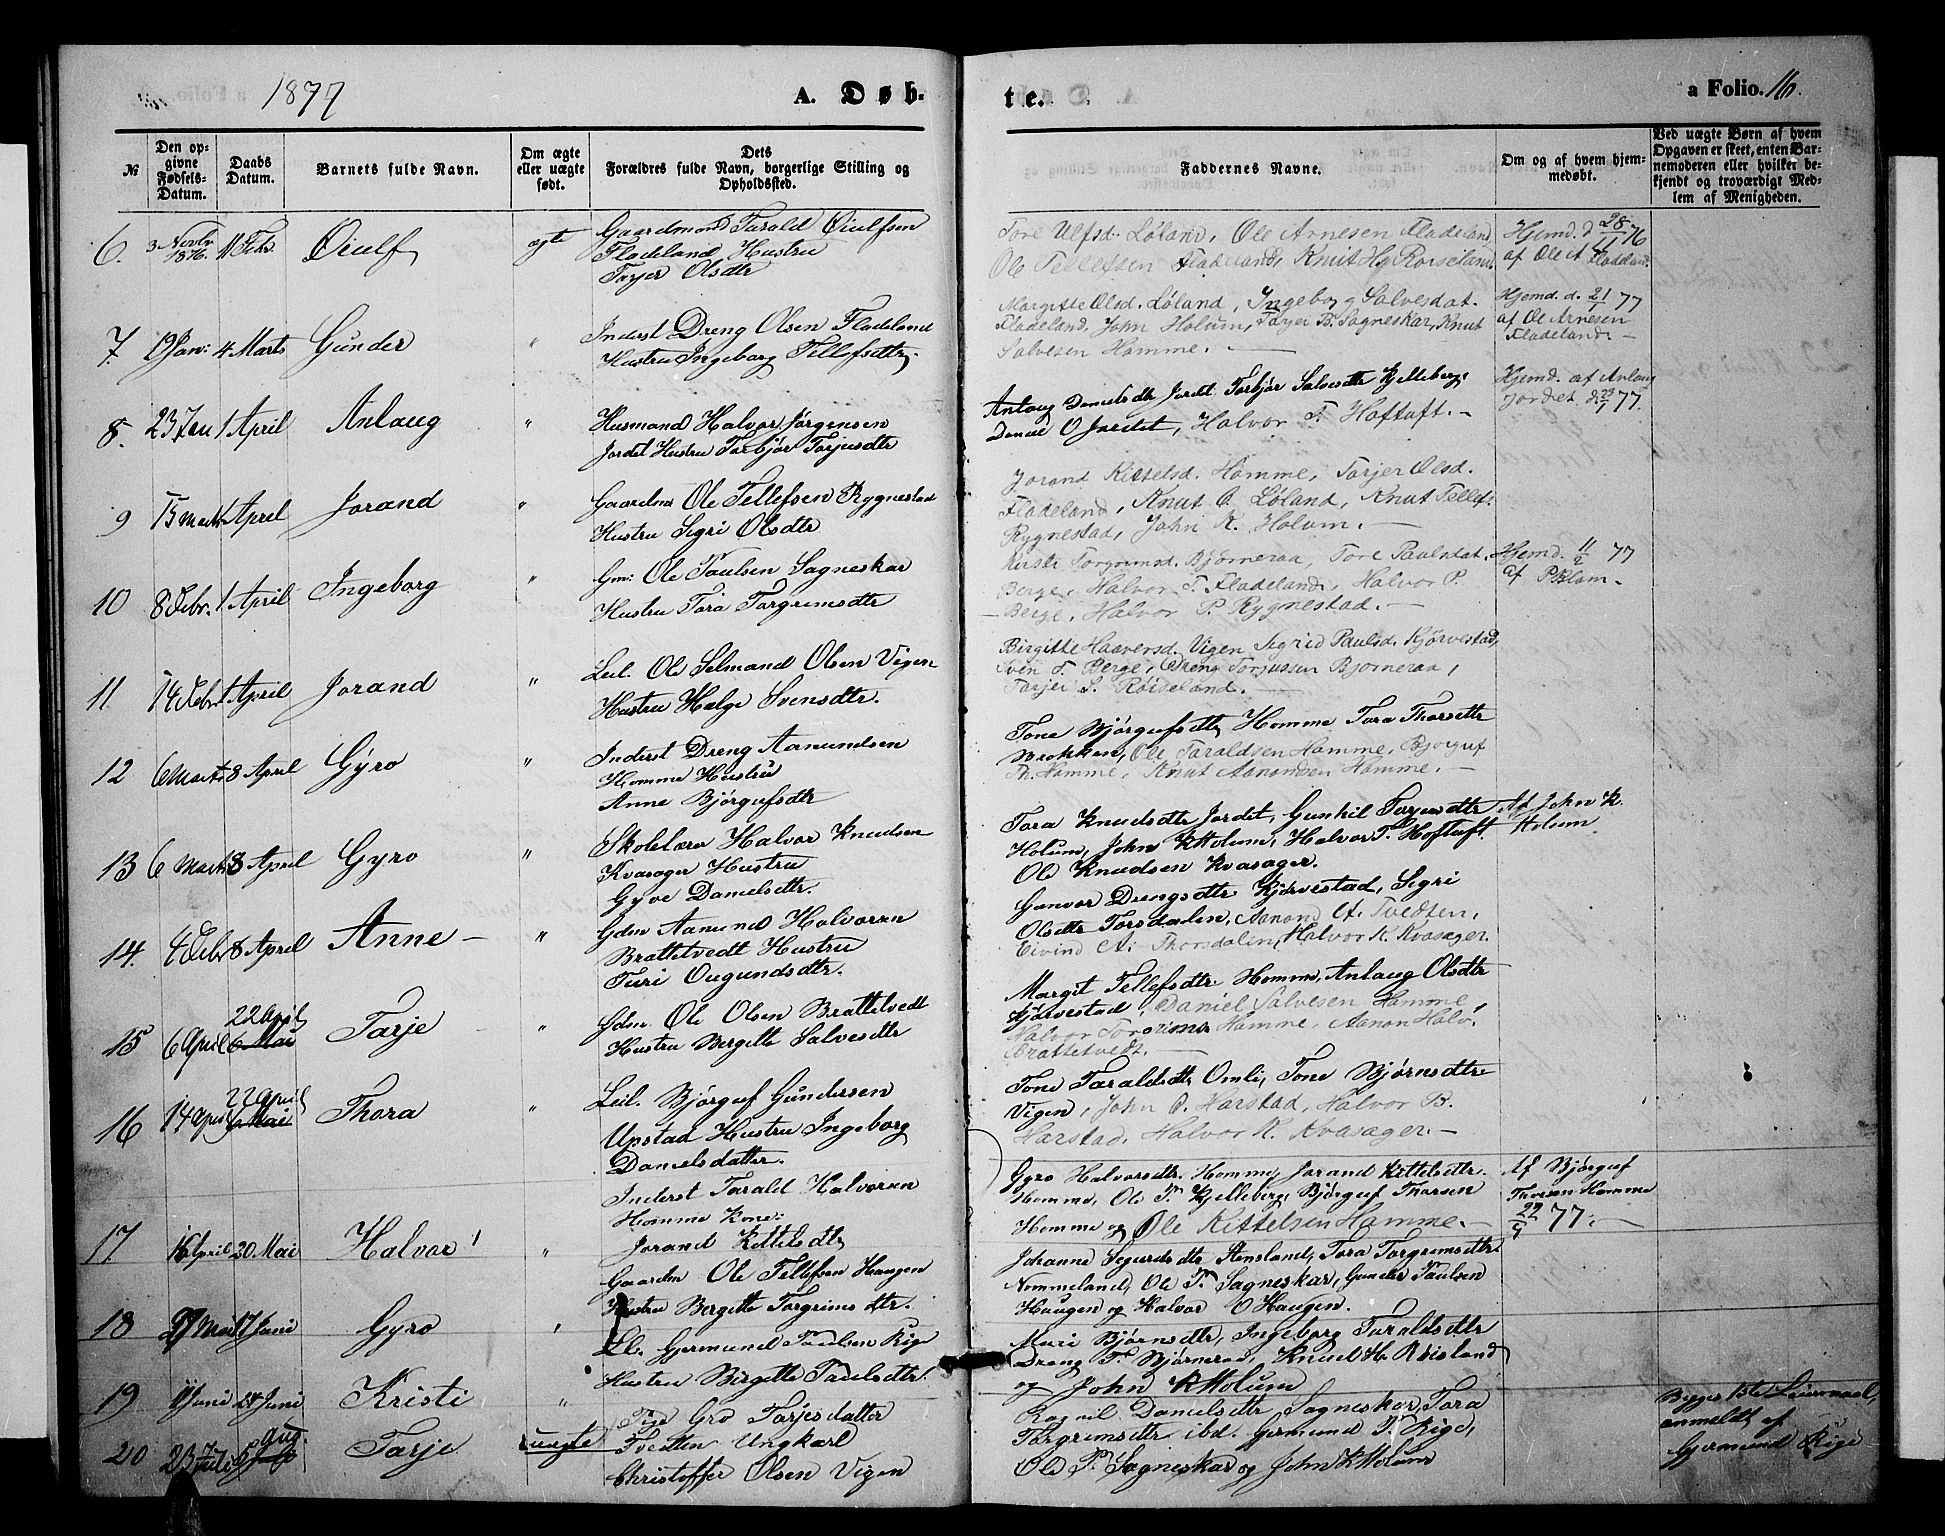 1877
A. Døb-
te.
a Folio. 16.
№
Den opgivne Fødsels-Datum.
Daabs Datum.
Barnets fulde Navn.
Om ægte eller uægte født.
Dets Forældres fulde Navn, borgerlige Stilling og Opholdssted.
Faddernes Navne.
Om og af hvem hjemmedøbt.
Ved uægte Børn af hvem Opgaven er skeet, enten Barnemoderen eller hvilket bekjendt og troværdigt Medlem af Menigheden.
6. 3 Novbr 1876. 11 Febr. Øiulf ægte
Gaardmand Tarald Øiulfsen
Fladeland Hustru
Torjer Olsdtr
Tore Ulfsd. Løland, Ole Arnesen Fladeland
Ole Tellefsen Fladeland, Knut Hg Rorseland.
Hjemd. d 28/11 76
af Ole A Fladeland.
7. 19 Jan: 4 Marts Gunder "
Inderst Dreng Olsen Fladeland
Hustru Ingeborg Tellefsdtr
Margitte Olsd. Løland, Ingeborg Salvesdat.
Fladeland, John Holum, Tarjer B. Sagneskar, Knut
Salvesen Homme.
Hjemd. d. 21/1 77
af Ole Arnesen
Fladeland
8. 23 Jan 1 April Anlaug "
Husmand Halvor Jørgensen
Jordet Hustru Torbjør Torjusdtr
Anlaug Danielsdtr Jordet Torbjør Salvesdtr Kjelleberg
Daniel O Jordet, Halvor T. Hoftuft.
Hjemd. af Anlaug
Jordet d. 23/1 77.
9 15 Marts 1 April Jorand "
Gaardm Ole Tellefsen Rygnestad
Hustru Sigri Olsdtr
Jorand Kittelsd. Homme, Torjer Olsd.
Fladeland, Knut O. Løland, Knut Tellefs.
Rygnestad, John K. Holum.
10 8 Febr. 1 April Ingeborg "
Gm: Ole Paulsen Sagneskar
Hustru Tora Torgrimsdtr
Kirsti Torgrimsd. Bjørneraa, Tore Paulsdat.
Berge, Halvor T. Fladeland, Halvor P.
Berge, Halvor P. Rygnestad.
Hjemd. 11/2 77
af P Klom.
11. 14 Febr 1 April Jorand "
Leil. Ole Selmand Olsen Vigen
Hustru Helge Svensdtr.
Birgitte Haaversd. Vigen Sigrid Paulsd. Kjørvestad,
Sven T. Berge, Dreng Torjussen Bjørneraa,
Tarjei S. Røiseland.
12 6 Marts 8 April Gyro "
Inderst Dreng Aamundsen
Homme Hustru
Anne Bjørgufsdtr
Tone Bjørgufsdtr Homme Tora Thorsdtr
Brokken, Ole Taraldsen Homme, Bjørguf
Th. Homme, Knut Aanondsen Homme.
13 6 Marts 8 April Gyro "
Skolelærer Halvor Knudsen
Kvasager Hustru
Gyve Danielsdtr.
Tora Knudsdtr Jordet, Gunhil Torjusdtr
Holum, John K Holum, Halvor T. Hoftuft.
Ole Knudsen Kvasager.
Af John K.
Holum
14. 4 Febr 8 April Anne "
Gdm Aamund Halvorsen
Brattetvedt Hustru
Turi Ougundsdtr.
Gunvor Drengsdtr Kjørvestad, Sigri
Olsdtr Torsdalen, Aanond A. Tvedten,
Eivind A. Thorsdalen, Halvor K. Kvasager.
15 6 April 22 April 6 Mai Tarje "
Gdm Ole Olsen Brattetvedt
Hustru Bergitte Salvesdtr
Margit Tellefsdtr. Homme, Anlaug Olsdtr
Kjørvestad, Daniel Salvesen Homme,
Halvor Torgrims Homme, Aanon Halv.
Brattetvedt.
16 14 April 22 April 6 Mai Thora "
Leil. Bjørguf Gundersen
Upstad Hustru Ingeborg
Danielsdatter.
Tone Taraldsdtr Omli, Tone Bjørnsdtr
Vigen, John O. Harstad, Halvor B.
Harstad. Halvor K. Kvasager.
17. 16 April 20. Mai Halvor "
Inderst Tarald Halvorsen
Homme Kone:
Jorand Kittelsdtr
Gyro Halvorsdtr. Homme, Jorand Kittelsdtr.
Homme, Ole T. Kjelleberg, Bjørguf Thorsen
Homme og Ole Kittelsen Homme.
Af Bjørguf
Thorsen Homme
22/4 77.
18 27 Mai 17 Juni Gyro "
Gaardm Ole Tellefsen Haugen
Hustru Bergitte Torgrimsdtr.
Johanne Sigurdsdtr Stensland, Tora Torgrimsdtr.
Nommeland, Ole P. Sagneskar, Gunder Paulsen
Haugen og Halvor O Haugen.
19 11 Juni 24 Juni Kristi "
Ll. Gjermund Paulsen Rige
Hustru Birgitte Paulsdtr.
Mari Bjørnsdtr, Ingeborg Taraldsdtr
Dreng T. Bjørneraa, Knud H. Røisland
og John K Holum
20 23 Juli 5 Aug. Tarje uægte
Pige Gro Tarjesdatter
Tvedten Ungkarl
Christoffer Olsen Vigen
Ragnil Danielsdtr Sagneskar, Tora
Torgrimsdtr ibd. Gjermund P. Rige,
Ole P. Sagneskar og John K Holum
Begges 1ste Leiermaal,
anmeldt af
Gjermund Rige